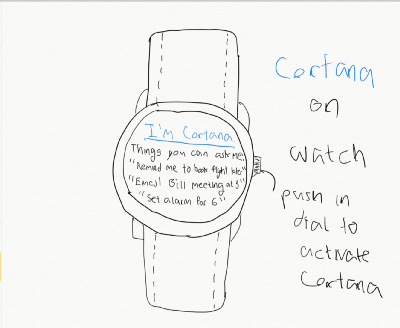 I'm Cortana
Things you can ask me
"Remind me to book flight
"Email Bill meeting at 3"
"Set alarm for 6"
Cortana
on
watch
push in
dial to
activate
Cortana